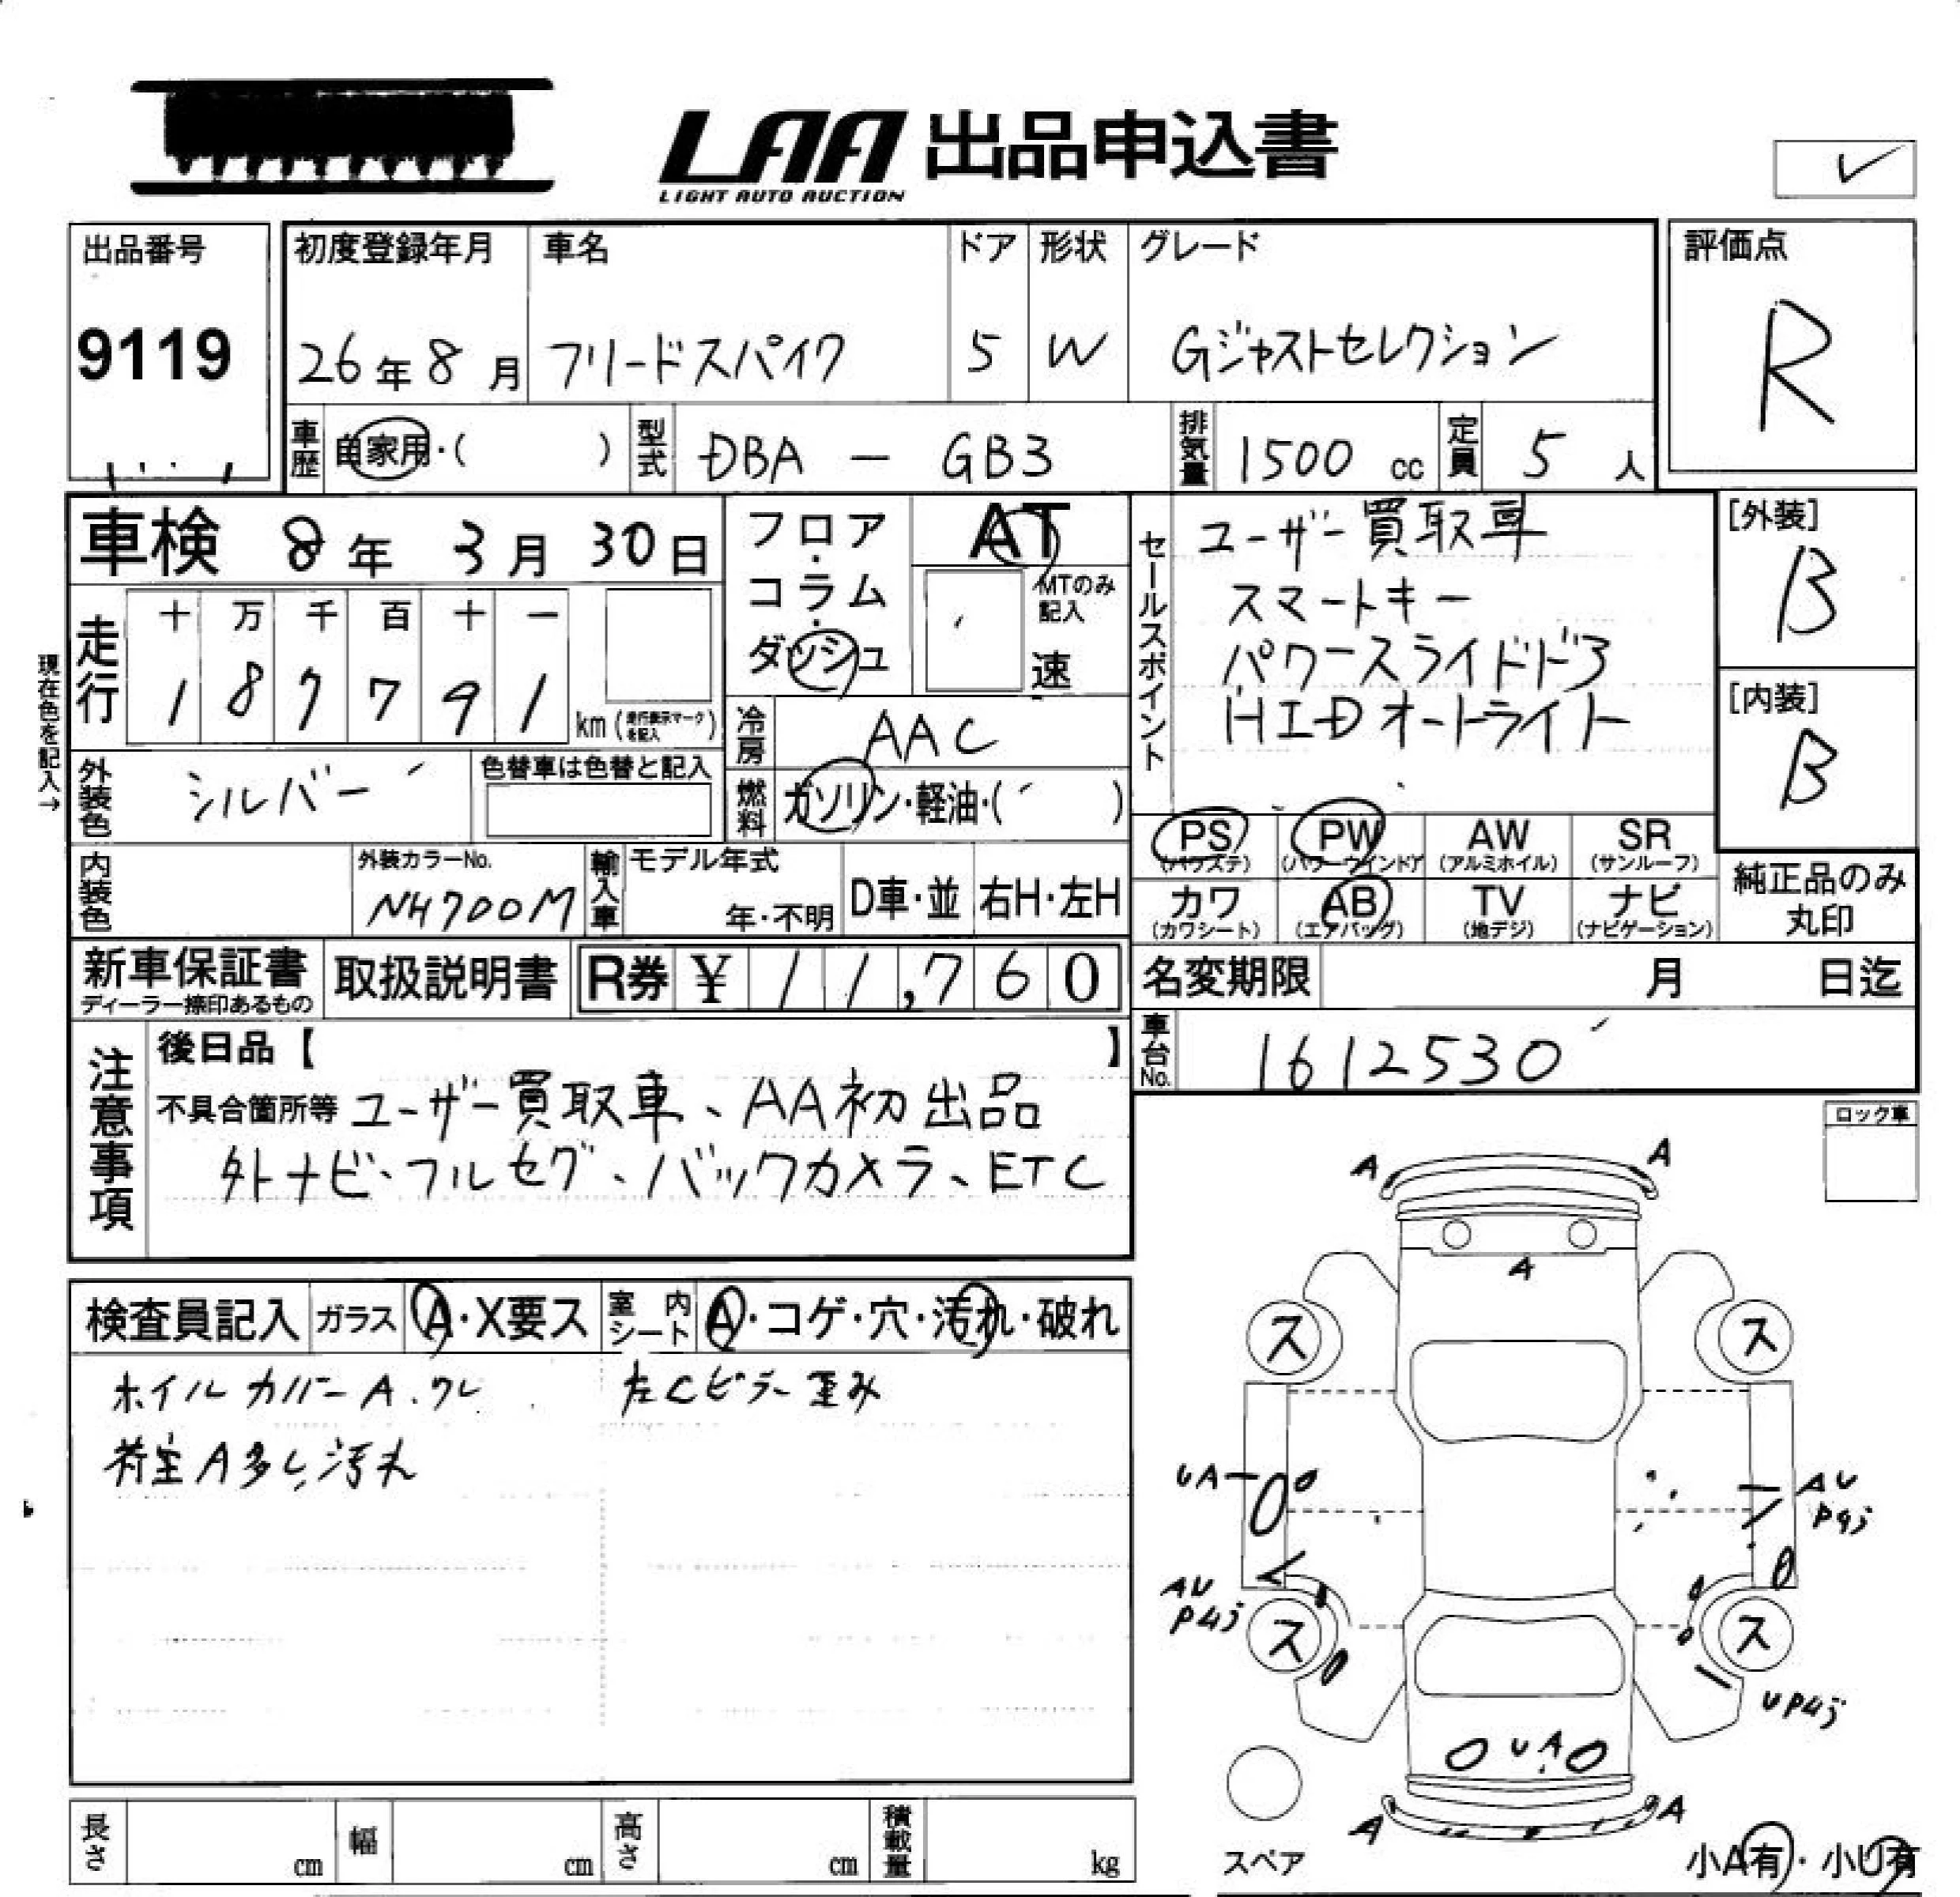 LAA 出品申込書
LIGHT AUTO AUCTION
✓
出品番号
9119
初度登録年月 車名 ドア 形状 グレード
26年8月 フリードスパイク 5 W Gジャストセレクション
評価点
R
車歴 自家用・( ) 型式 DBA - GB3 排気量 1500 cc 定員 5 人
車検 8年 3月 30日
フロア・コラム・ダッシュ
AT
MTのみ記入
速
セールスポイント
ユーザー買取車
スマートキー
パワースライドドア
HIDオートライト
[外装]
B
[内装]
B
現在色を記入→
走行 十 万 千 百 十 一
1 8 7 7 9 1 km (走行表示マークを記入)
冷房 AAC
外装色 シルバー 色替車は色替と記入
燃料 ガソリン・軽油・( )
PS AW SR PW
(パワステ) (パワーウインドウ) (アルミホイル) (サンルーフ)
カワ AB TV ナビ
(カワシート) (エアバッグ) (地デジ) (ナビゲーション)
純正品のみ
丸印
内装色 外装カラーNo. NH700M 輸入車 モデル年式 年・不明 D車・並 右H・左H
新車保証書 取扱説明書 R券 ¥ 11,760
ディーラー捺印あるもの
名変期限 月 日迄
車台No. 1612530
注意事項
後日品【 】
不具合箇所等 ユーザー買取車、AA初出品
外ナビ、フルセグ、バックカメラ、ETC
ロック車
検査員記入 ガラス A・X要ス 室内シート A・コゲ・穴・汚れ・破れ
ホイルカバーA.ワレ 左Cピラー歪み
荷室A多し汚れ
A A
A
ス ス
UA AU
AU
ス ス
UA
A A
スペア 小A有・小U有
長さ cm 幅 cm 高さ cm 積載量 kg